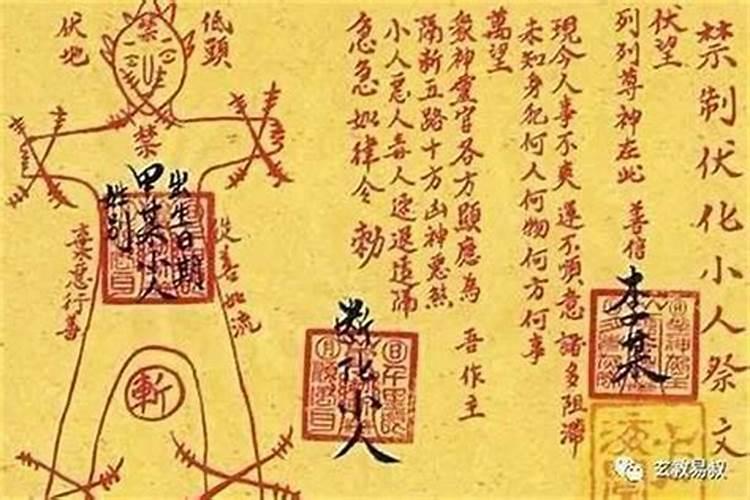 禁制伏化小人祭文
伏望
列列尊神在此 善信
李某
現今人事不爽 運不順意 諸多阻滯
未知身犯何人何物何方何事
萬望
眾神靈官各方顯應為 吾作主
隔斷五路十方凶神惡煞
小人惡人毒人速退遠隔
急急如律令 勅
斷化小人
低頭
伏地
禁
禁
出生日期
甲某小人
性別
從善如流
棄惡行善
斬
玄教易叔